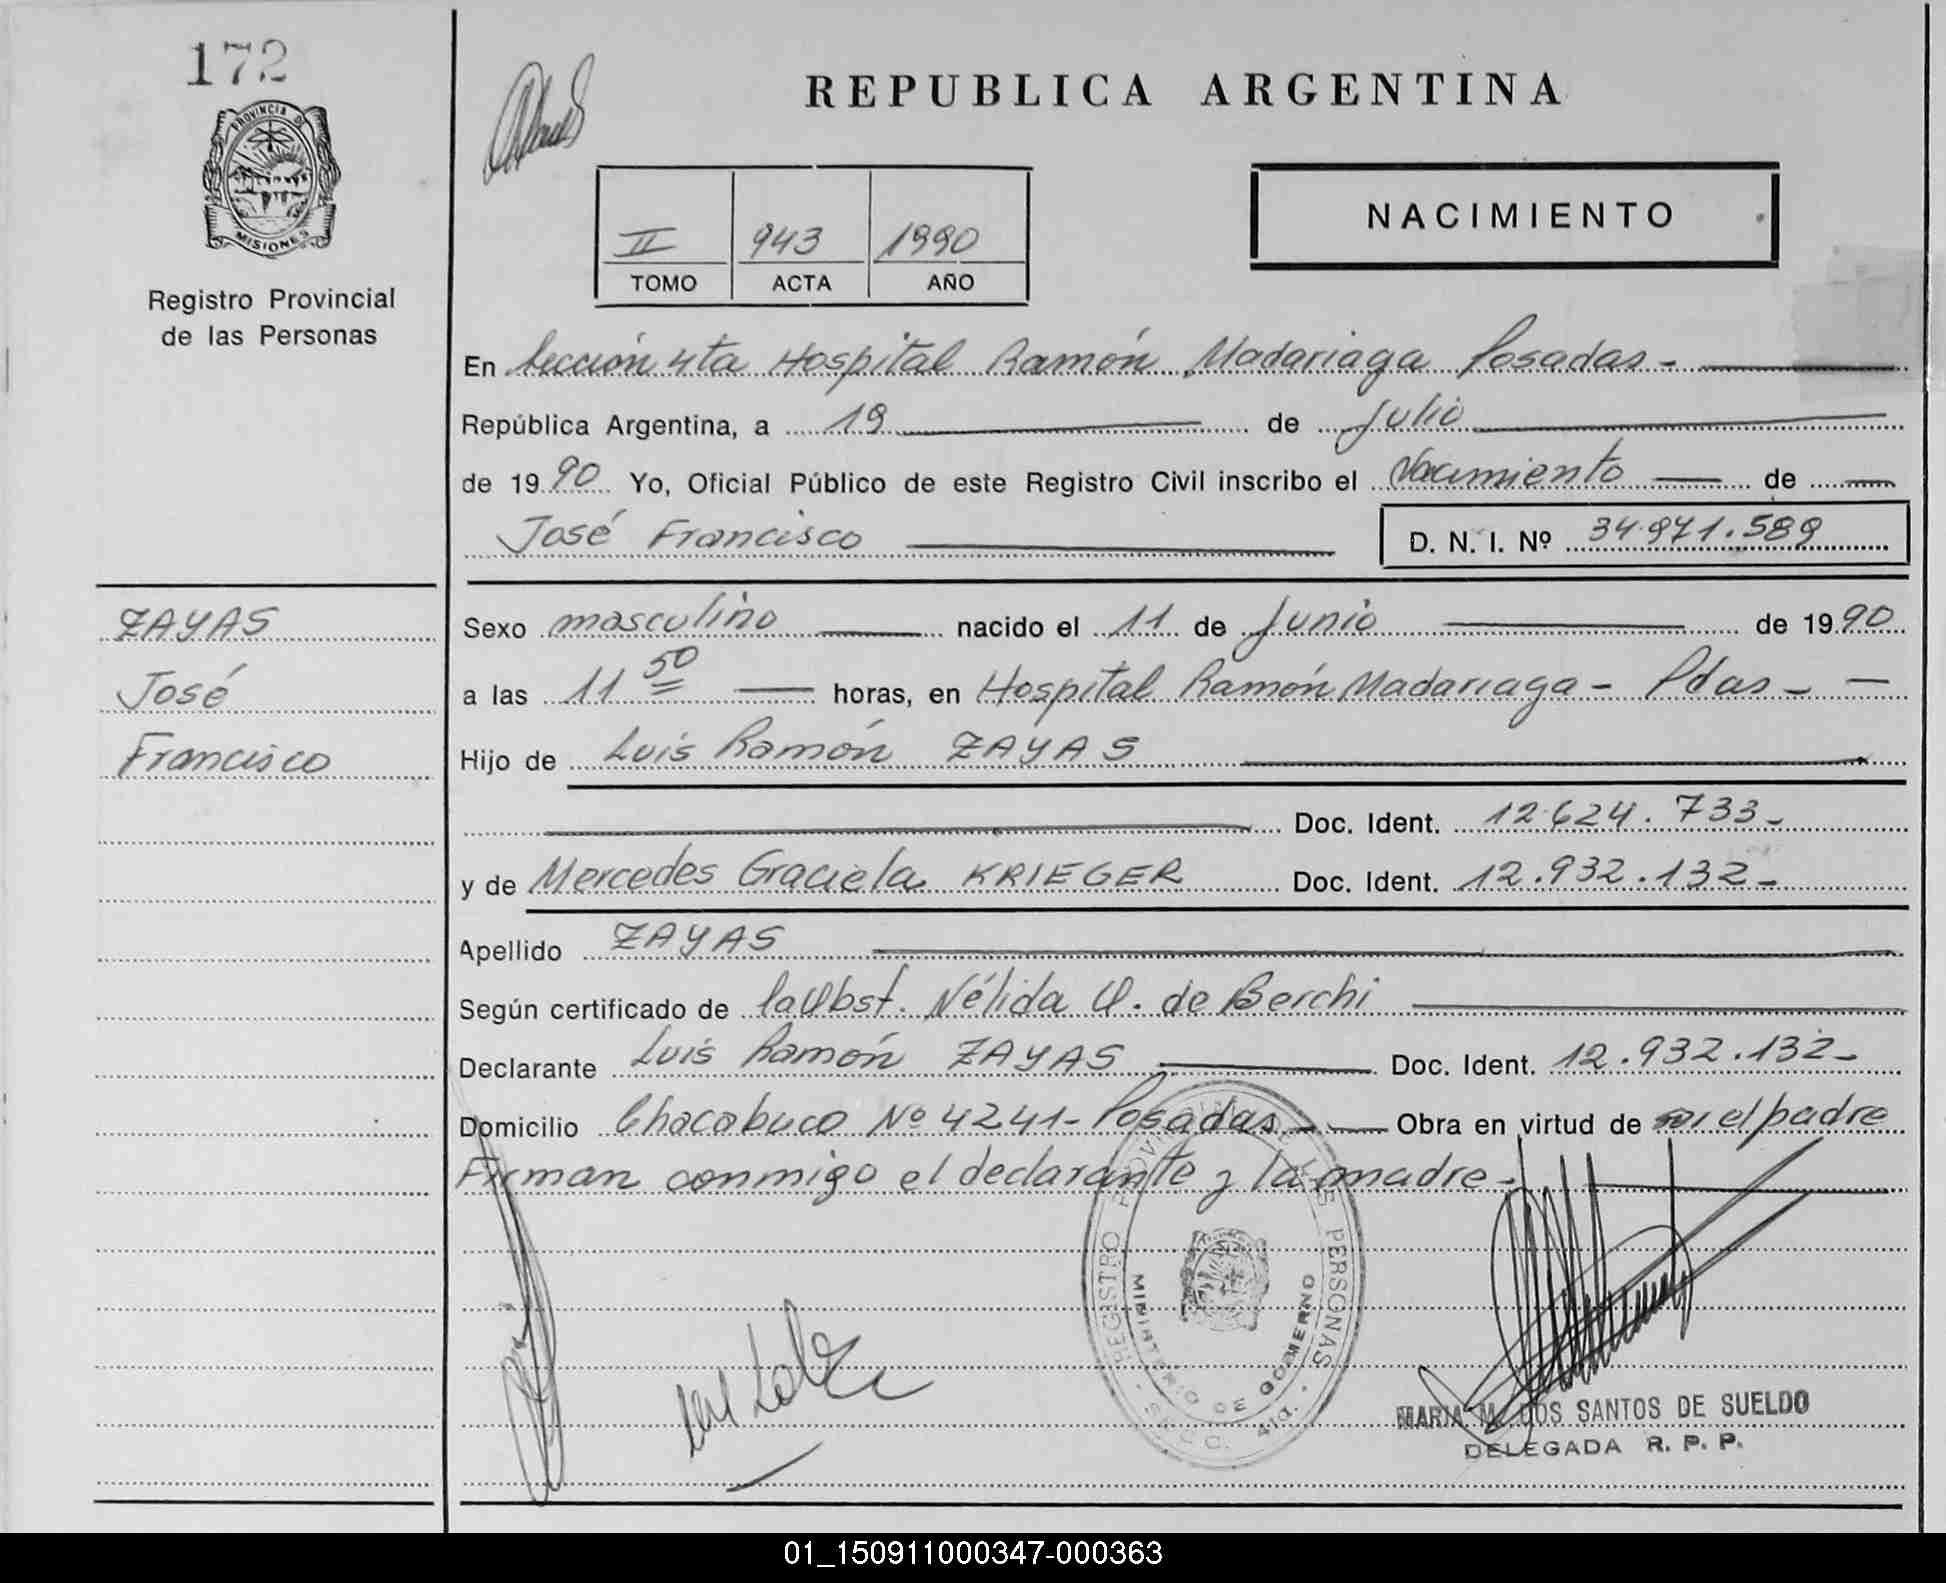 172
PROVINCIA DE
MISIONES
Registro Provincial
de las Personas
REPUBLICA ARGENTINA
II 943 1990
TOMO ACTA AÑO
NACIMIENTO
En Sección 4ta Hospital Ramón Madariaga Posadas -
República Argentina, a 19 de Julio
de 1990 Yo, Oficial Público de este Registro Civil inscribo el Nacimiento de
José Francisco D. N. I. Nº 34.971.589
ZAYAS
José
Francisco
Sexo masculino nacido el 11 de Junio de 1990
a las 11 50 horas, en Hospital Ramón Madariaga - Pdas -
Hijo de Luis Ramón ZAYAS
Doc. Ident. 12.624.733-
y de Mercedes Graciela KRIEGER Doc. Ident. 12.932.132-
Apellido ZAYAS
Según certificado de la Obst. Nélida O. de Berchi
Declarante Luis Ramón ZAYAS Doc. Ident. 12.932.132-
Domicilio Chacabuco Nº 4241- Posadas - Obra en virtud de el padre
Firman conmigo el declarante y la madre -
REGISTRO PROVINCIAL DE LAS PERSONAS
MINISTERIO DE GOBIERNO
SECC. 4ta.
MARIA M. DOS SANTOS DE SUELDO
DELEGADA R. P. P.
01_150911000347-000363